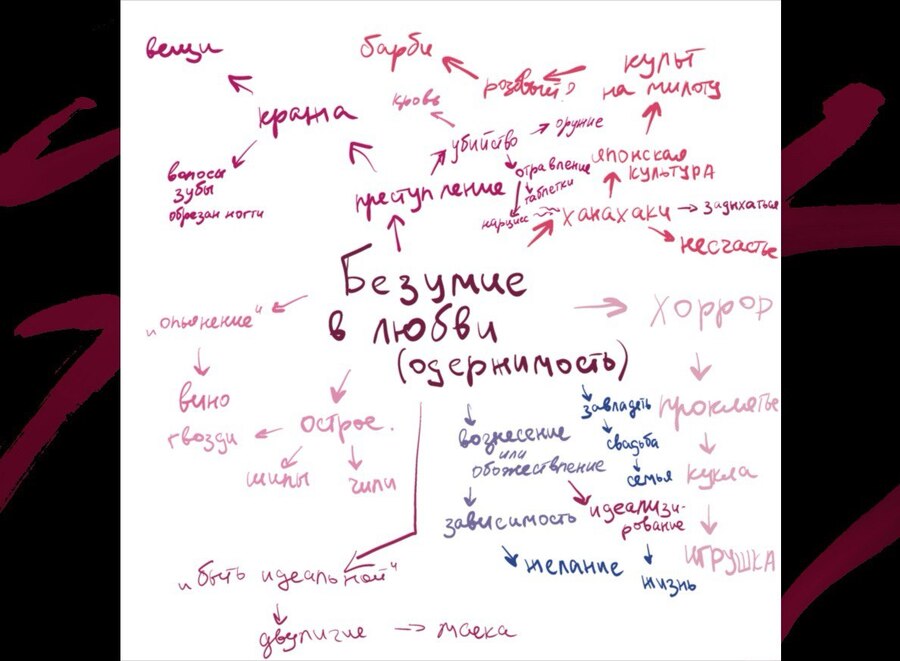 вещи
барби
культ
на милоту
розовый?
кровь
кража
убийство
оружие
волосы
зубы
обрезан ногти
отравление
таблетки
японская
культура
преступление
нарцисс
ханахаки
задыхаться
несчастье
Безумие
в любви
(одержимость)
"опьянение"
хоррор
вино
гвозди
острое.
шипы
чили
вознесение
или
обожествление
завладеть
свадьба
семья
проклятье
кукла
игрушка
зависимость
идеализи-
рование
желание
жизнь
"быть идеальной"
двуличие
маска